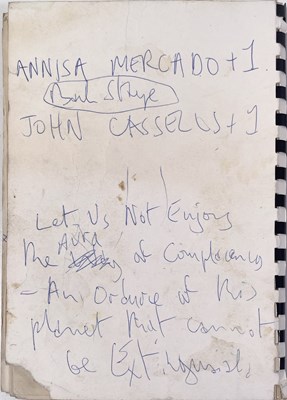 ANNISA MERCADO +1
JOHN CASSELUS +1
Let Us Not Enjoy
the Aura of Complacency
- An Ordure of this
planet that cannot
be Extinguish